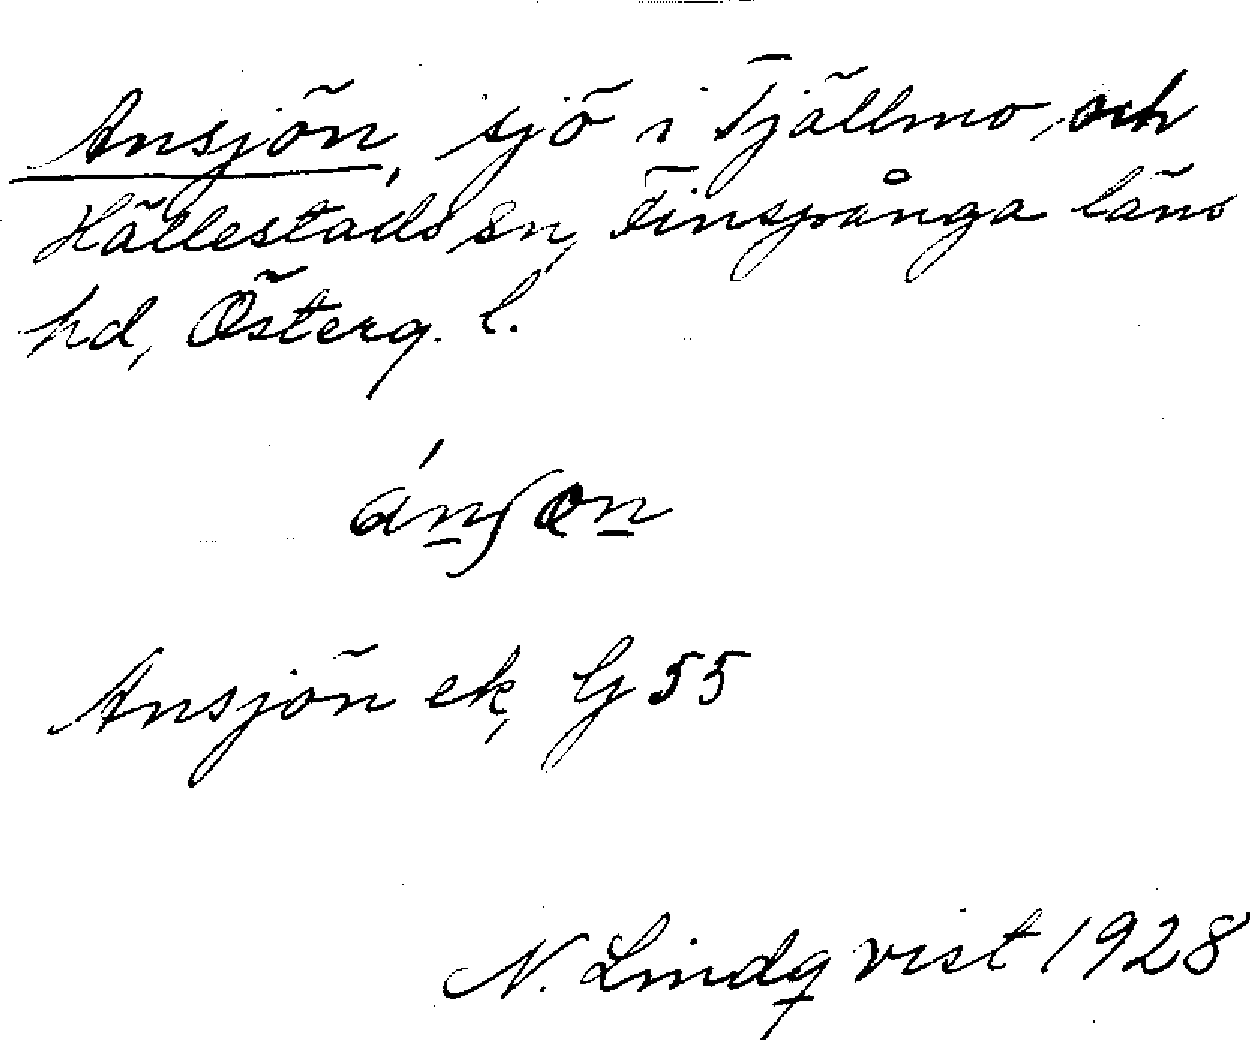 Ansjön, sjö i Tjällmo och
Hällestads sn, Finspånga läns
hd, Österg. l.
ánʃøn
Ansjön ek, G 55
N. Lindqvist 1928